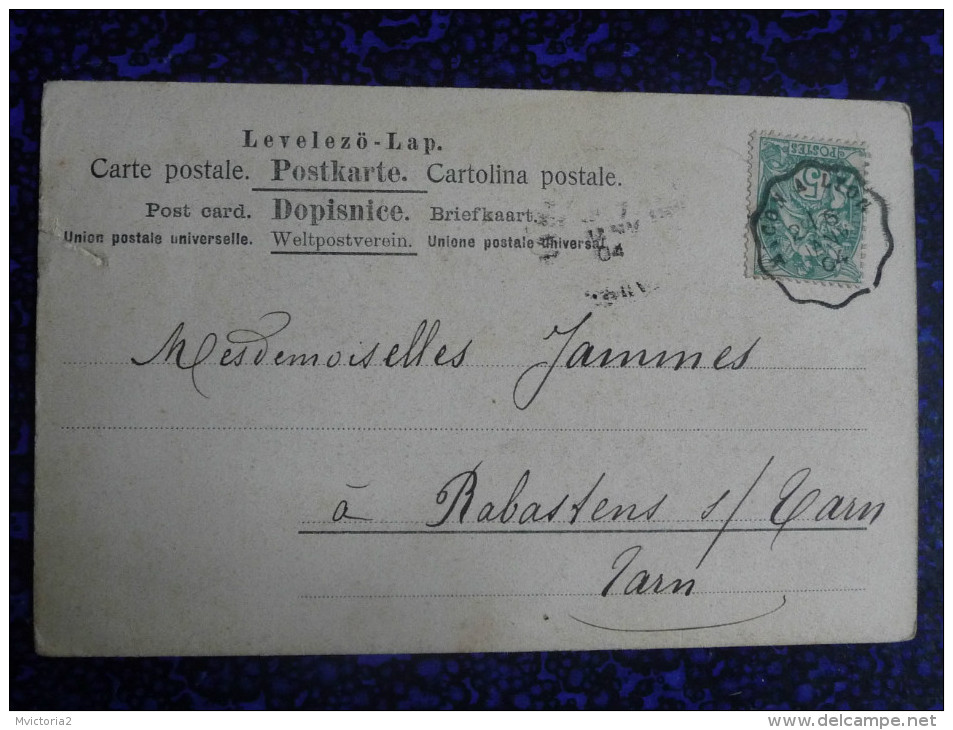 Levelezö-Lap.
Carte postale. Postkarte. Cartolina postale.
Post card. Dopisnice. Briefkaart.
Union postale universelle. Weltpostverein. Unione postale universal
POSTES
5
MACON A
04
04
Mesdemoiselles Jammes
à Rabastens s/ Tarn
Tarn
Mvictoria2
http://www.delcampe.net